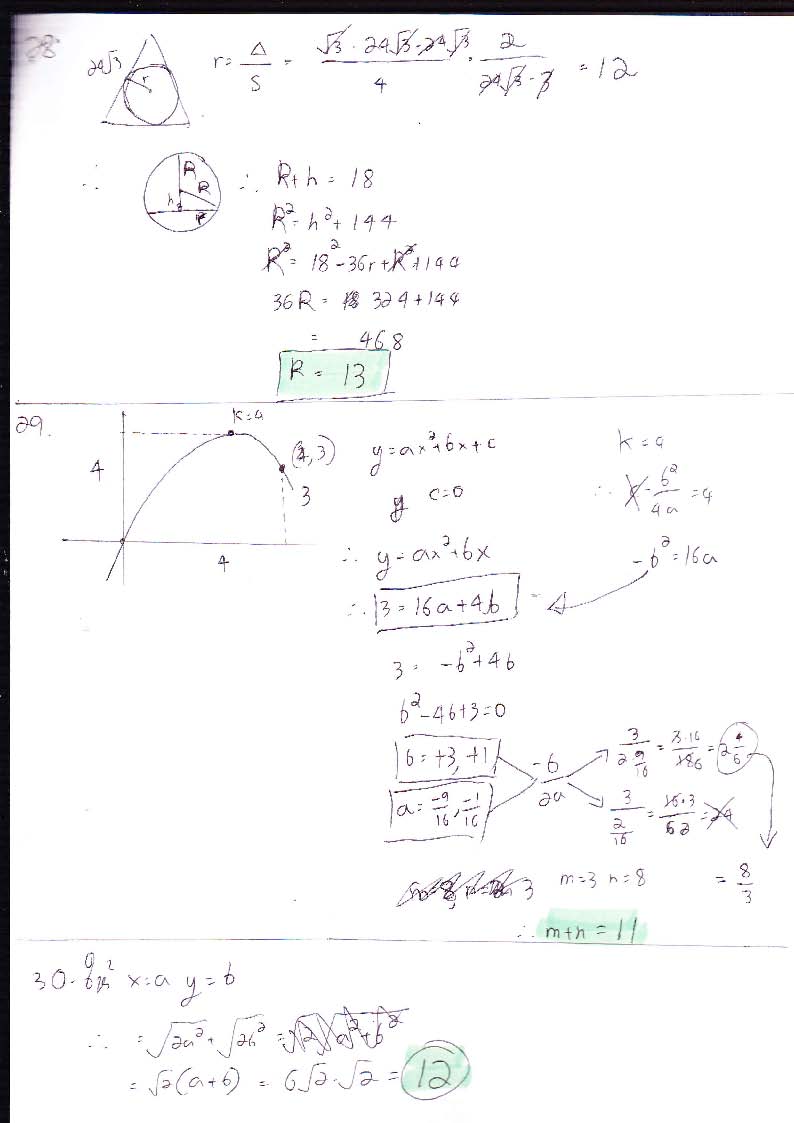 28
24√3
r
r = Δ/S = (√3 · 24√3 · 24√3)/4 · 2/(24√3 · 3) = 12
∴
R
R
h
r
∴ R + h = 18
R² = h² + 144
R² = 18² - 36r + R² + 144
36R = 324 + 144
= 468
R = 13
29.
k=4
4
(4, 3)
3
4
y = ax² + bx + c
y c=0
∴ y = ax² + bx
∴ 3 = 16a + 4b
k = 4
∴ -b²/4a = 4
-b² = 16a
3 = -b² + 4b
b² - 4b + 3 = 0
b = +3, +1
a = -9/16, -1/16
-b/2a
3/(2 9/16) = 3·16/186 = 2 4/6
3/(2/16) = 16·3/62 = 24
= 8/3
3 m=3 n=8
∴ m+n = 11
30. x=a y=b
∴ = √2a² + √2b² = √2 √a²+b²
= √2(a+b) = 6√2·√2 = 12